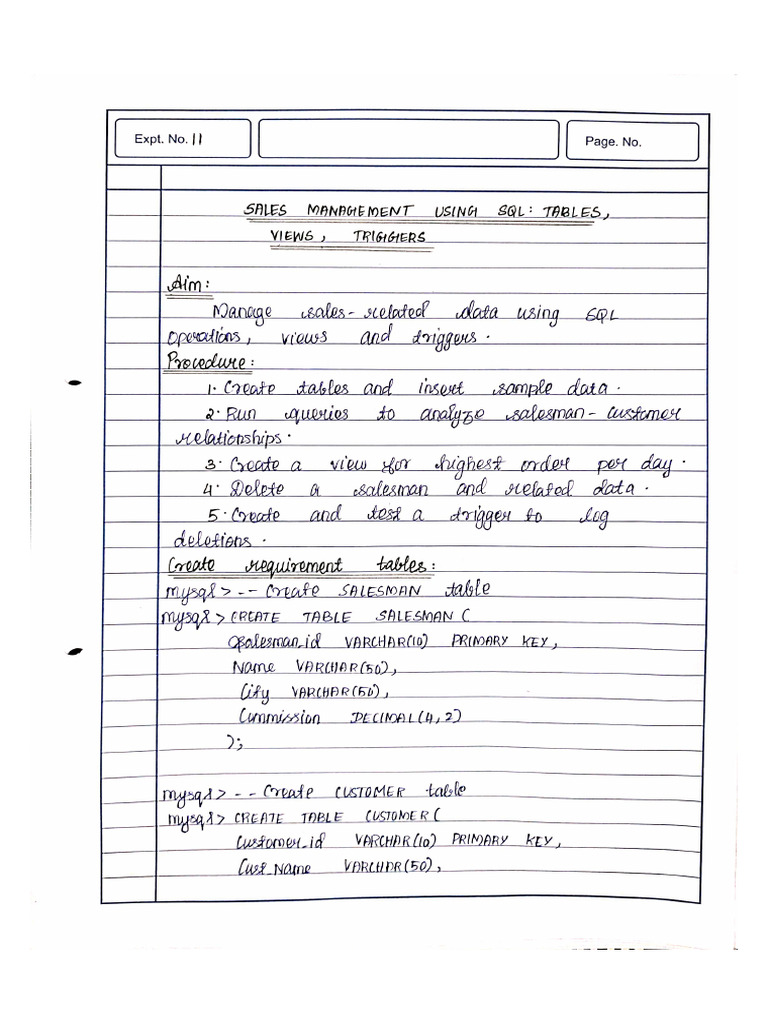 Expt. No. 11
Page. No.
SALES MANAGEMENT USING SQL: TABLES,
VIEWS, TRIGGERS
Aim:
Manage sales-related data using SQL
operations, views and triggers.
Procedure:
1. Create tables and insert sample data.
2. Run queries to analyze salesman-customer
relationships.
3. Create a view for highest order per day.
4. Delete a salesman and related data.
5. Create and test a trigger to log
deletions.
Create requirement tables:
mysql> -- Create SALESMAN table
mysql> CREATE TABLE SALESMAN (
Salesman_id VARCHAR(10) PRIMARY KEY,
Name VARCHAR(50),
City VARCHAR(50),
Commission DECIMAL(4,2)
);
mysql> -- Create CUSTOMER table
mysql> CREATE TABLE CUSTOMER (
Customer_id VARCHAR(10) PRIMARY KEY,
Cust_Name VARCHAR(50),